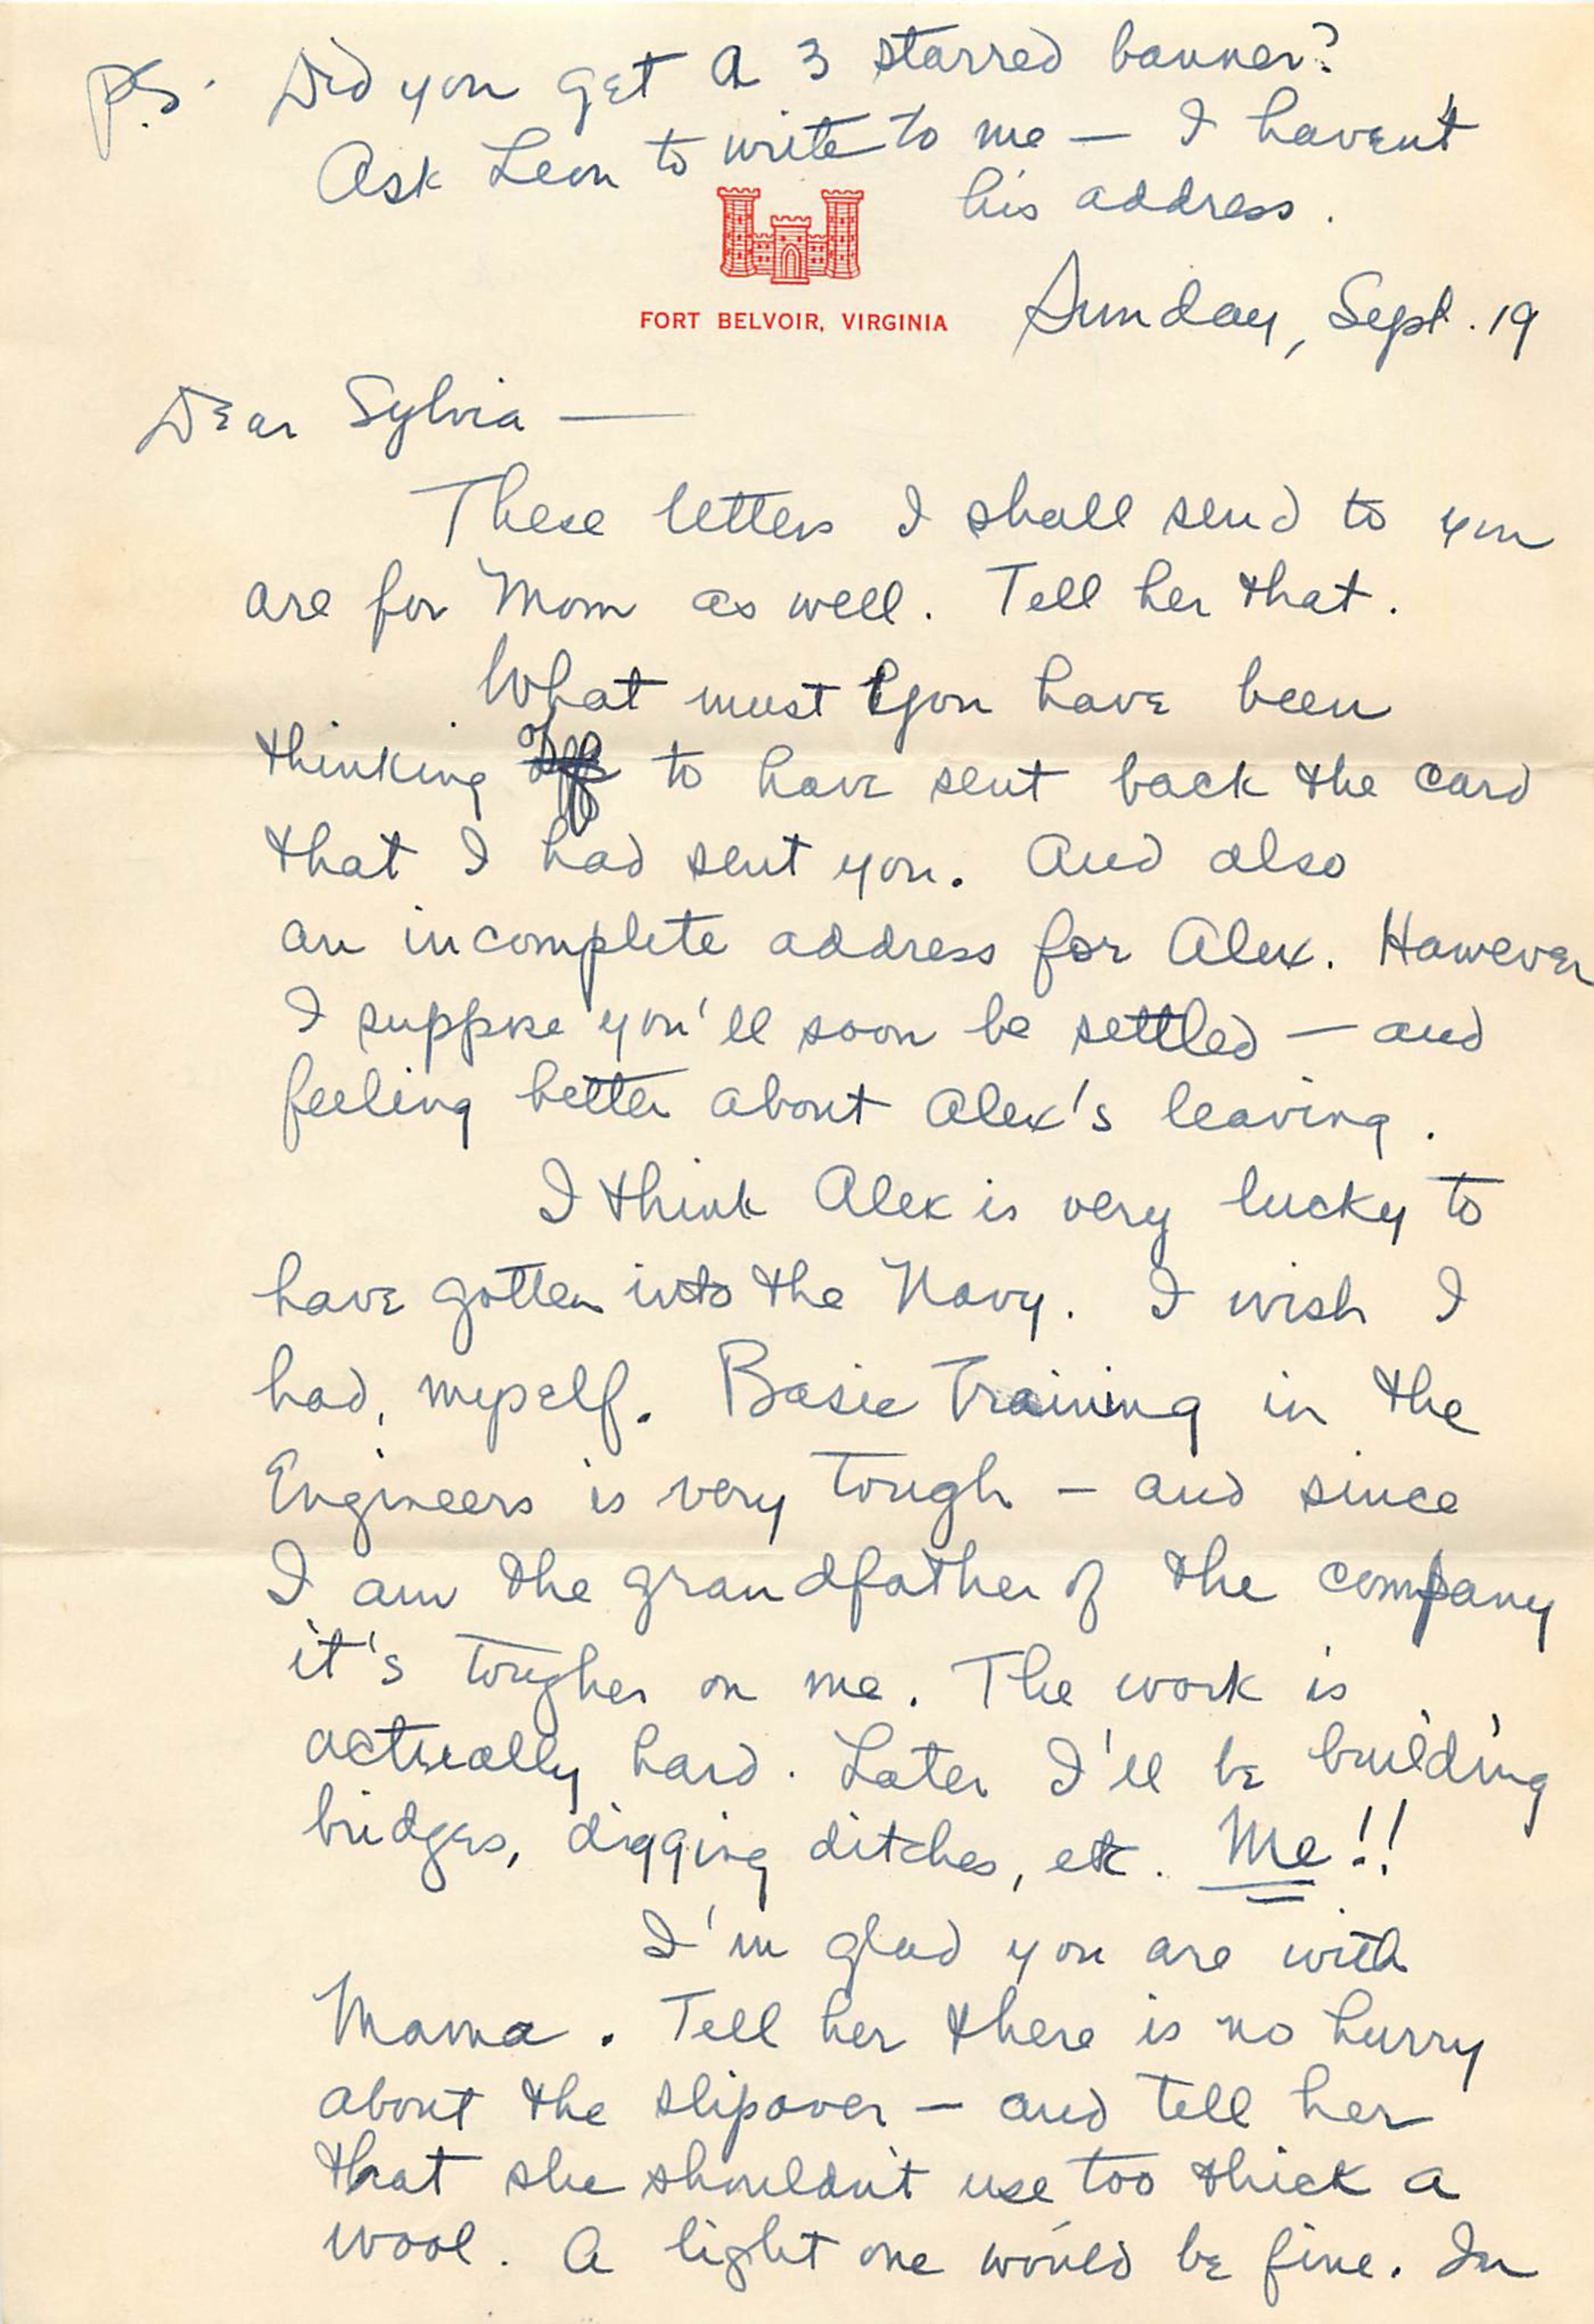 P.S. Did you get a 3 starred banner?
Ask Leon to write to me — I havent
his address.
FORT BELVOIR, VIRGINIA
Sunday, Sept. 19
Dear Sylvia —
These letters I shall send to you
are for Mom as well. Tell her that.
What must you have been
thinking of to have sent back the card
that I had sent you. And also
an incomplete address for Alex. However
I suppose you'll soon be settled — and
feeling better about Alex's leaving.
I think Alex is very lucky to
have gotten into the Navy. I wish I
had, myself. Basic Training in the
Engineers is very tough — and since
I am the grandfather of the company
it's tougher on me. The work is
actually hard. Later I'll be building
bridges, digging ditches, etc. Me!!
I'm glad you are with
Mama. Tell her there is no hurry
about the slipover — and tell her
that she shouldn't use too thick a
wool. A light one would be fine. In